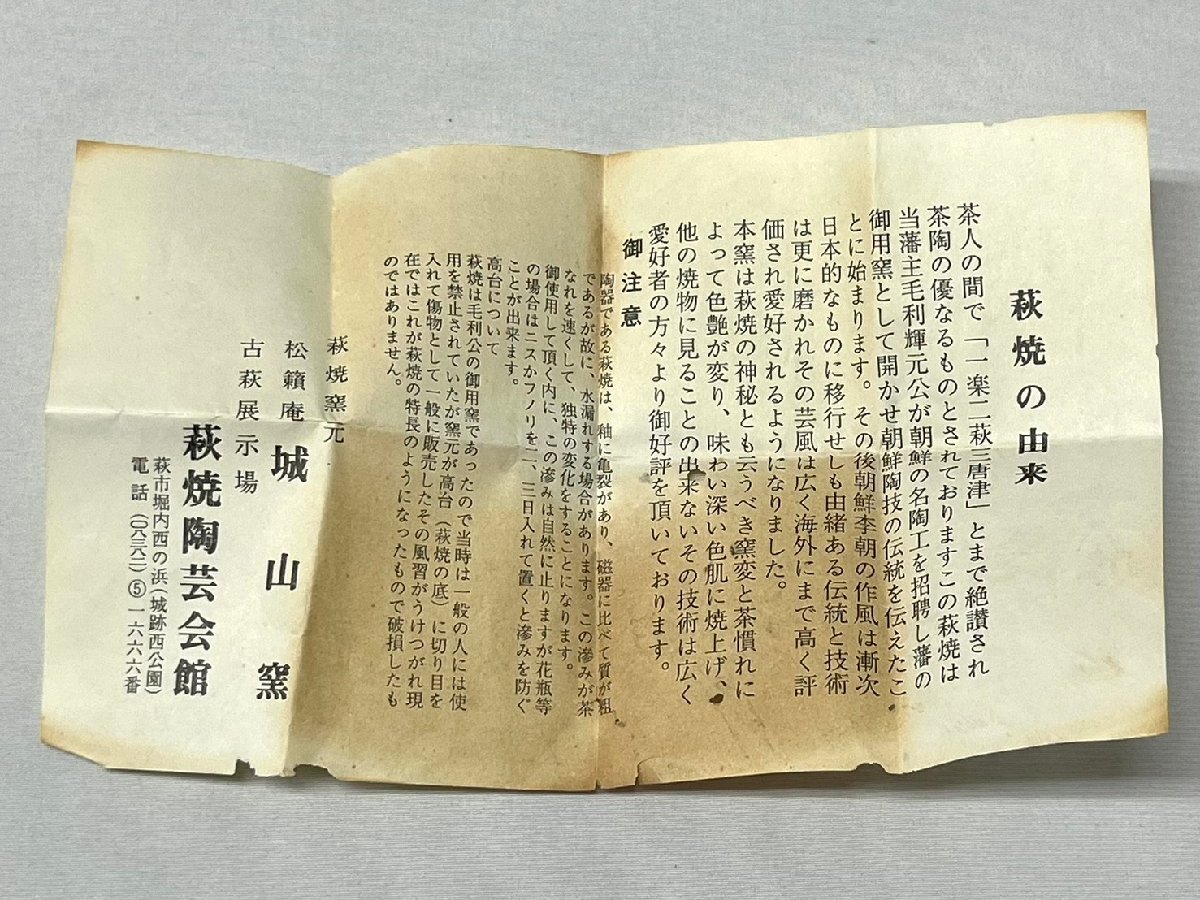 萩焼の由来
茶人の間で「一楽二萩三唐津」とまで絶讃され
茶陶の優なるものとされておりますこの萩焼は
当藩主毛利輝元公が朝鮮の名陶工を招聘し藩の
御用窯として開かせ朝鮮陶技の伝統を伝えたこ
とに始まります。その後朝鮮李朝の作風は漸次
日本的なものに移行せしも由緒ある伝統と技術
は更に磨かれその芸風は広く海外にまで高く評
価され愛好されるようになりました。
本窯は萩焼の神秘とも云うべき窯変と茶慣れに
よって色艶が変り、味わい深い色肌に焼上げ、
他の焼物に見ることの出来ないその技術は広く
愛好者の方々より御好評を頂いております。
御注意
陶器である萩焼は、釉に亀裂があり、磁器に比べて質が粗
であるが故に、水漏れする場合があります。この滲みが茶
なれを速くして、独特の変化をすることになります。
御使用して頂く内に、この滲みは自然に止りますが花瓶等
の場合はニスかフノリを二、三日入れて置くと滲みを防ぐ
ことが出来ます。
高台について
萩焼は毛利公の御用窯であったので当時は一般の人には使
用を禁止されていたが窯元が高台(萩焼の底)に切り目を
入れて傷物として一般に販売したその風習がうけつがれ現
在ではこれが萩焼の特長のようになったもので破損したも
のではありません。
萩焼窯元
松籟庵 城山窯
古萩展示場
萩焼陶芸会館
萩市堀内西の浜(城跡西公園)
電話(〇八三八二)⑤一六六六番